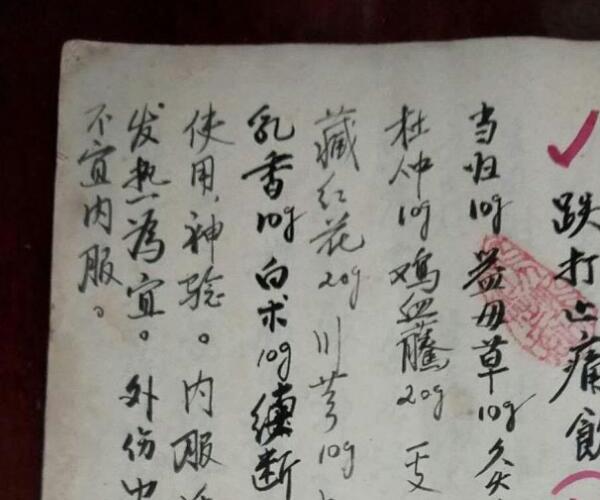 跌打止痛飲
当归10g 益母草10g 灸
杜仲10g 鸡血藤20g
藏红花20g 川芎10g
乳香10g 白术10g 续断
使用，神验。内服
发热为宜。外伤出
不宜内服。